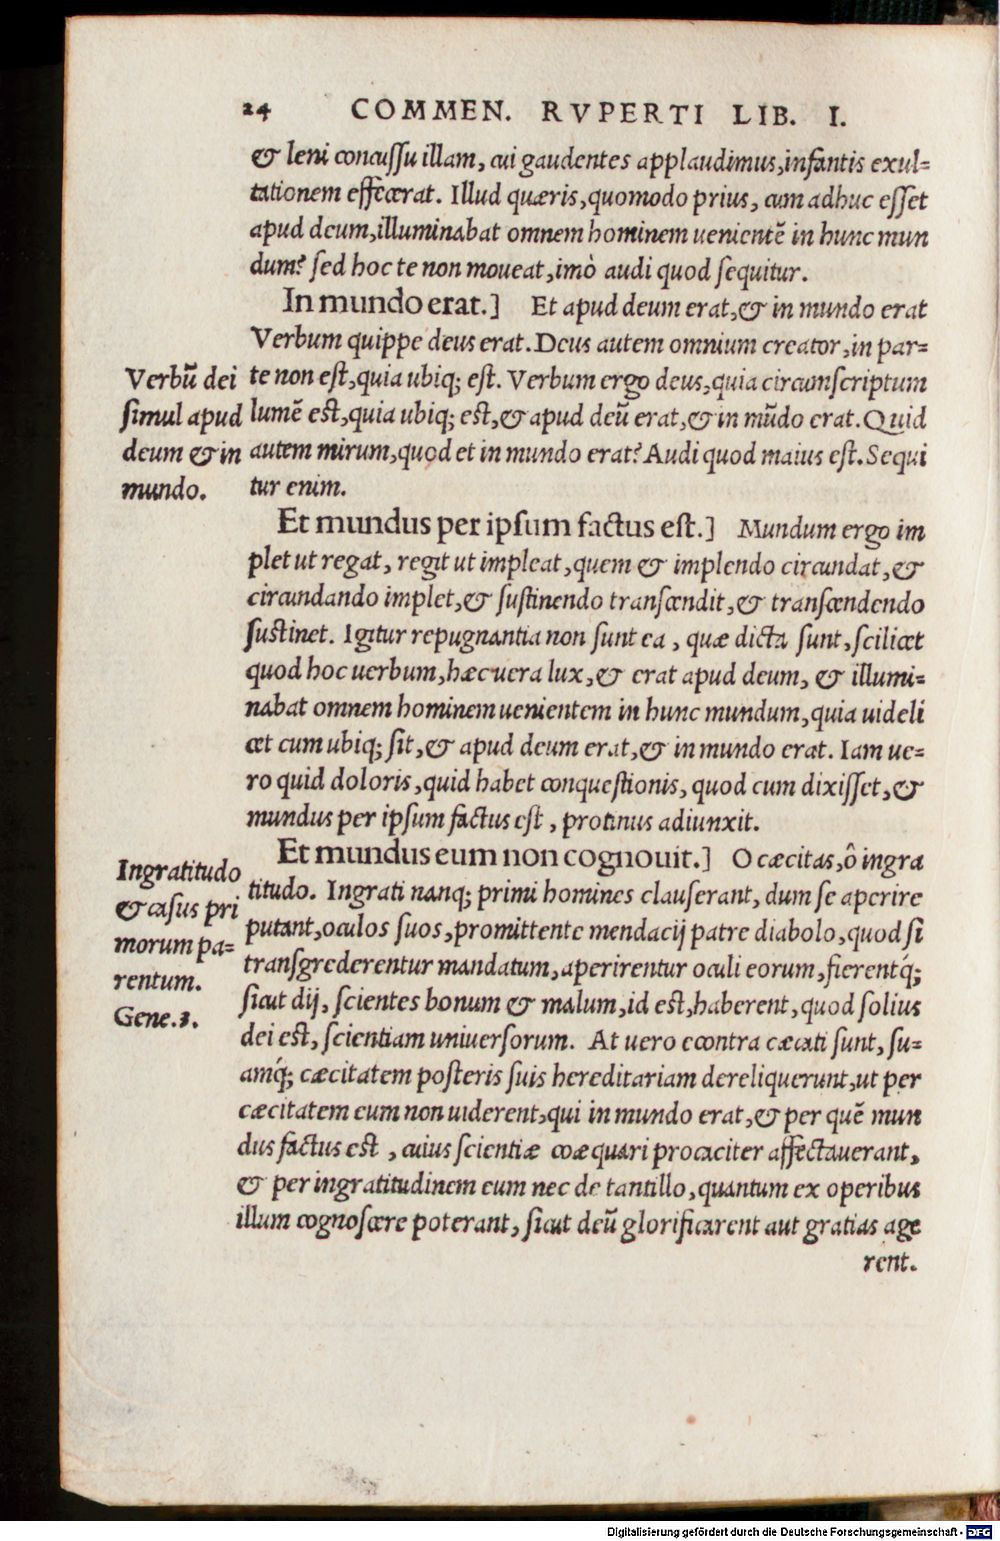 24 COMMEN. RVPERTI LIB. I.
& leni concuſſu illam, cui gaudentes applaudimus, infantis exul=
tationem effecerat. Illud quæris, quomodo prius, cum adhuc eſſet
apud deum, illuminabat omnem hominem uenientē in hunc mun
dum? ſed hoc te non moueat, imò audi quod ſequitur.
In mundo erat.] Et apud deum erat, & in mundo erat
Verbum quippe deus erat. Deus autem omnium creator, in par=
te non eſt, quia ubiq; eſt. Verbum ergo deus, quia circumſcriptum
lumē eſt, quia ubiq; eſt, & apud deū erat, & in mūdo erat. Quid
autem mirum, quod et in mundo erat? Audi quod maius eſt. Sequi
tur enim.
Verbū dei
ſimul apud
deum & in
mundo.
Et mundus per ipſum factus eſt.] Mundum ergo im
plet ut regat, regit ut impleat, quem & implendo circundat, &
circundando implet, & ſuſtinendo tranſcendit, & tranſcendendo
ſuſtinet. Igitur repugnantia non ſunt ea, quæ dicta ſunt, ſcilicet
quod hoc uerbum, hæc uera lux, & erat apud deum, & illumi=
nabat omnem hominem uenientem in hunc mundum, quia uideli
cet cum ubiq; ſit, & apud deum erat, & in mundo erat. Iam ue=
ro quid doloris, quid habet conqueſtionis, quod cum dixiſſet, &
mundus per ipſum factus eſt, protinus adiunxit.
Et mundus eum non cognouit.] O cæcitas, ô ingra
titudo. Ingrati nanq; primi homines clauſerant, dum ſe aperire
putant, oculos ſuos, promittente mendacij patre diabolo, quod ſi
tranſgrederentur mandatum, aperirentur oculi eorum, fierentq́;
ſicut dij, ſcientes bonum & malum, id eſt, haberent, quod ſolius
dei eſt, ſcientiam uniuerſorum. At uero econtra cæcati ſunt, ſu=
amq́; cæcitatem poſteris ſuis hereditariam dereliquerunt, ut per
cæcitatem eum non uiderent, qui in mundo erat, & per quē mun
dus factus eſt, cuius ſcientiæ coæquari procaciter affectauerant,
& per ingratitudinem eum nec de tantillo, quantum ex operibus
illum cognoſcere poterant, ſicut deū glorificarent aut gratias age
rent.
Ingratitudo
& caſus pri
morum pa=
rentum.
Gene.3.
Digitalisierung gefördert durch die Deutsche Forschungsgemeinschaft - DFG